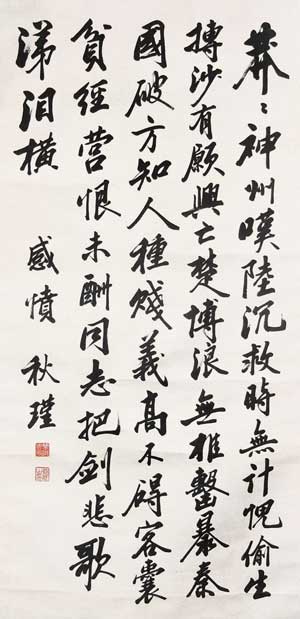 莽〻神州嘆陸沉救時無計愧偷生
摶沙有願興亡楚博浪無椎擊暴秦
國破方知人種賤義高不碍客囊
貧經營恨未酬同志把劍悲歌
涕泪橫 感憤 秋瑾